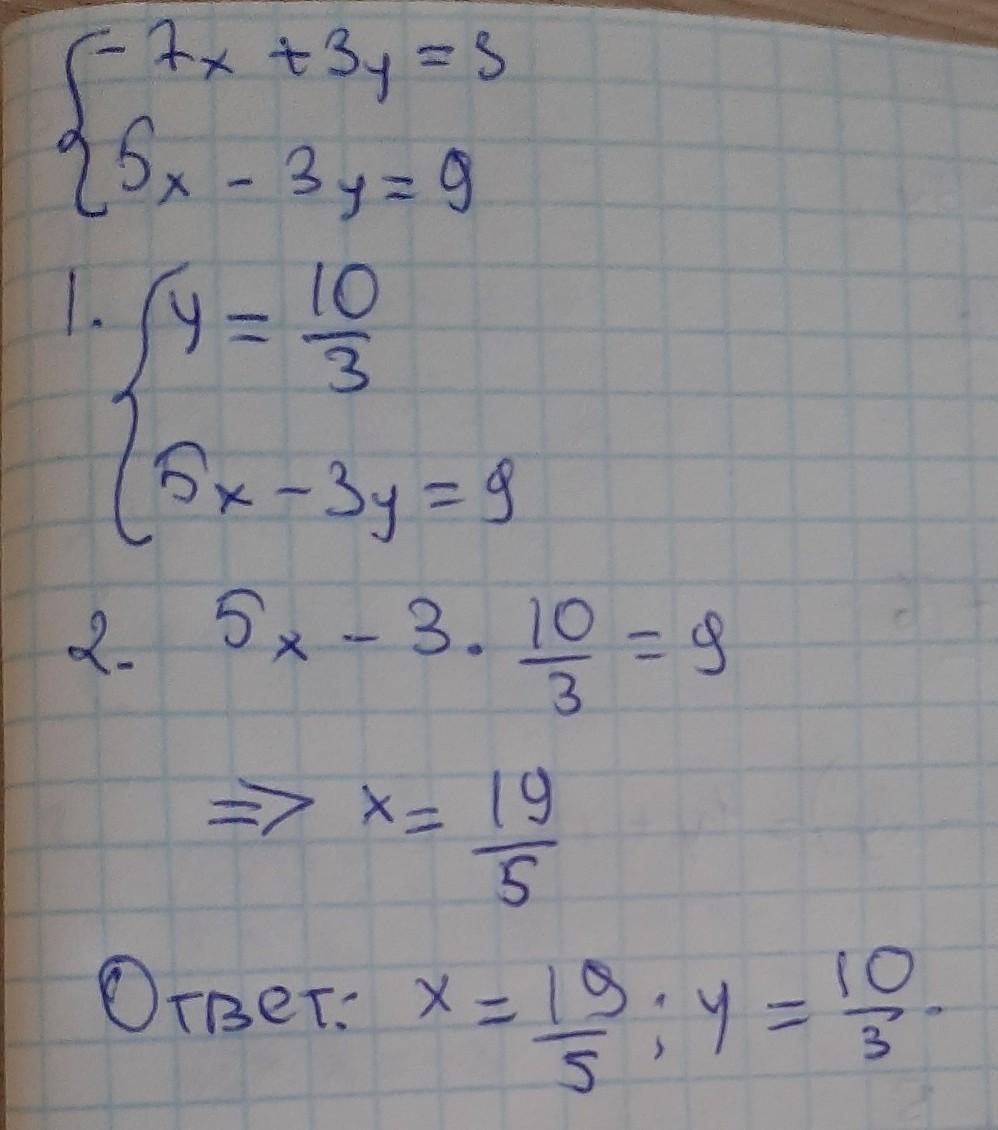 { -7x + 3y = 3
5x - 3y = 9
1. { y = 10/3
5x - 3y = 9
2. 5x - 3 · 10/3 = 9
=> x = 19/5
Ответ: x = 19/5 ; y = 10/3.